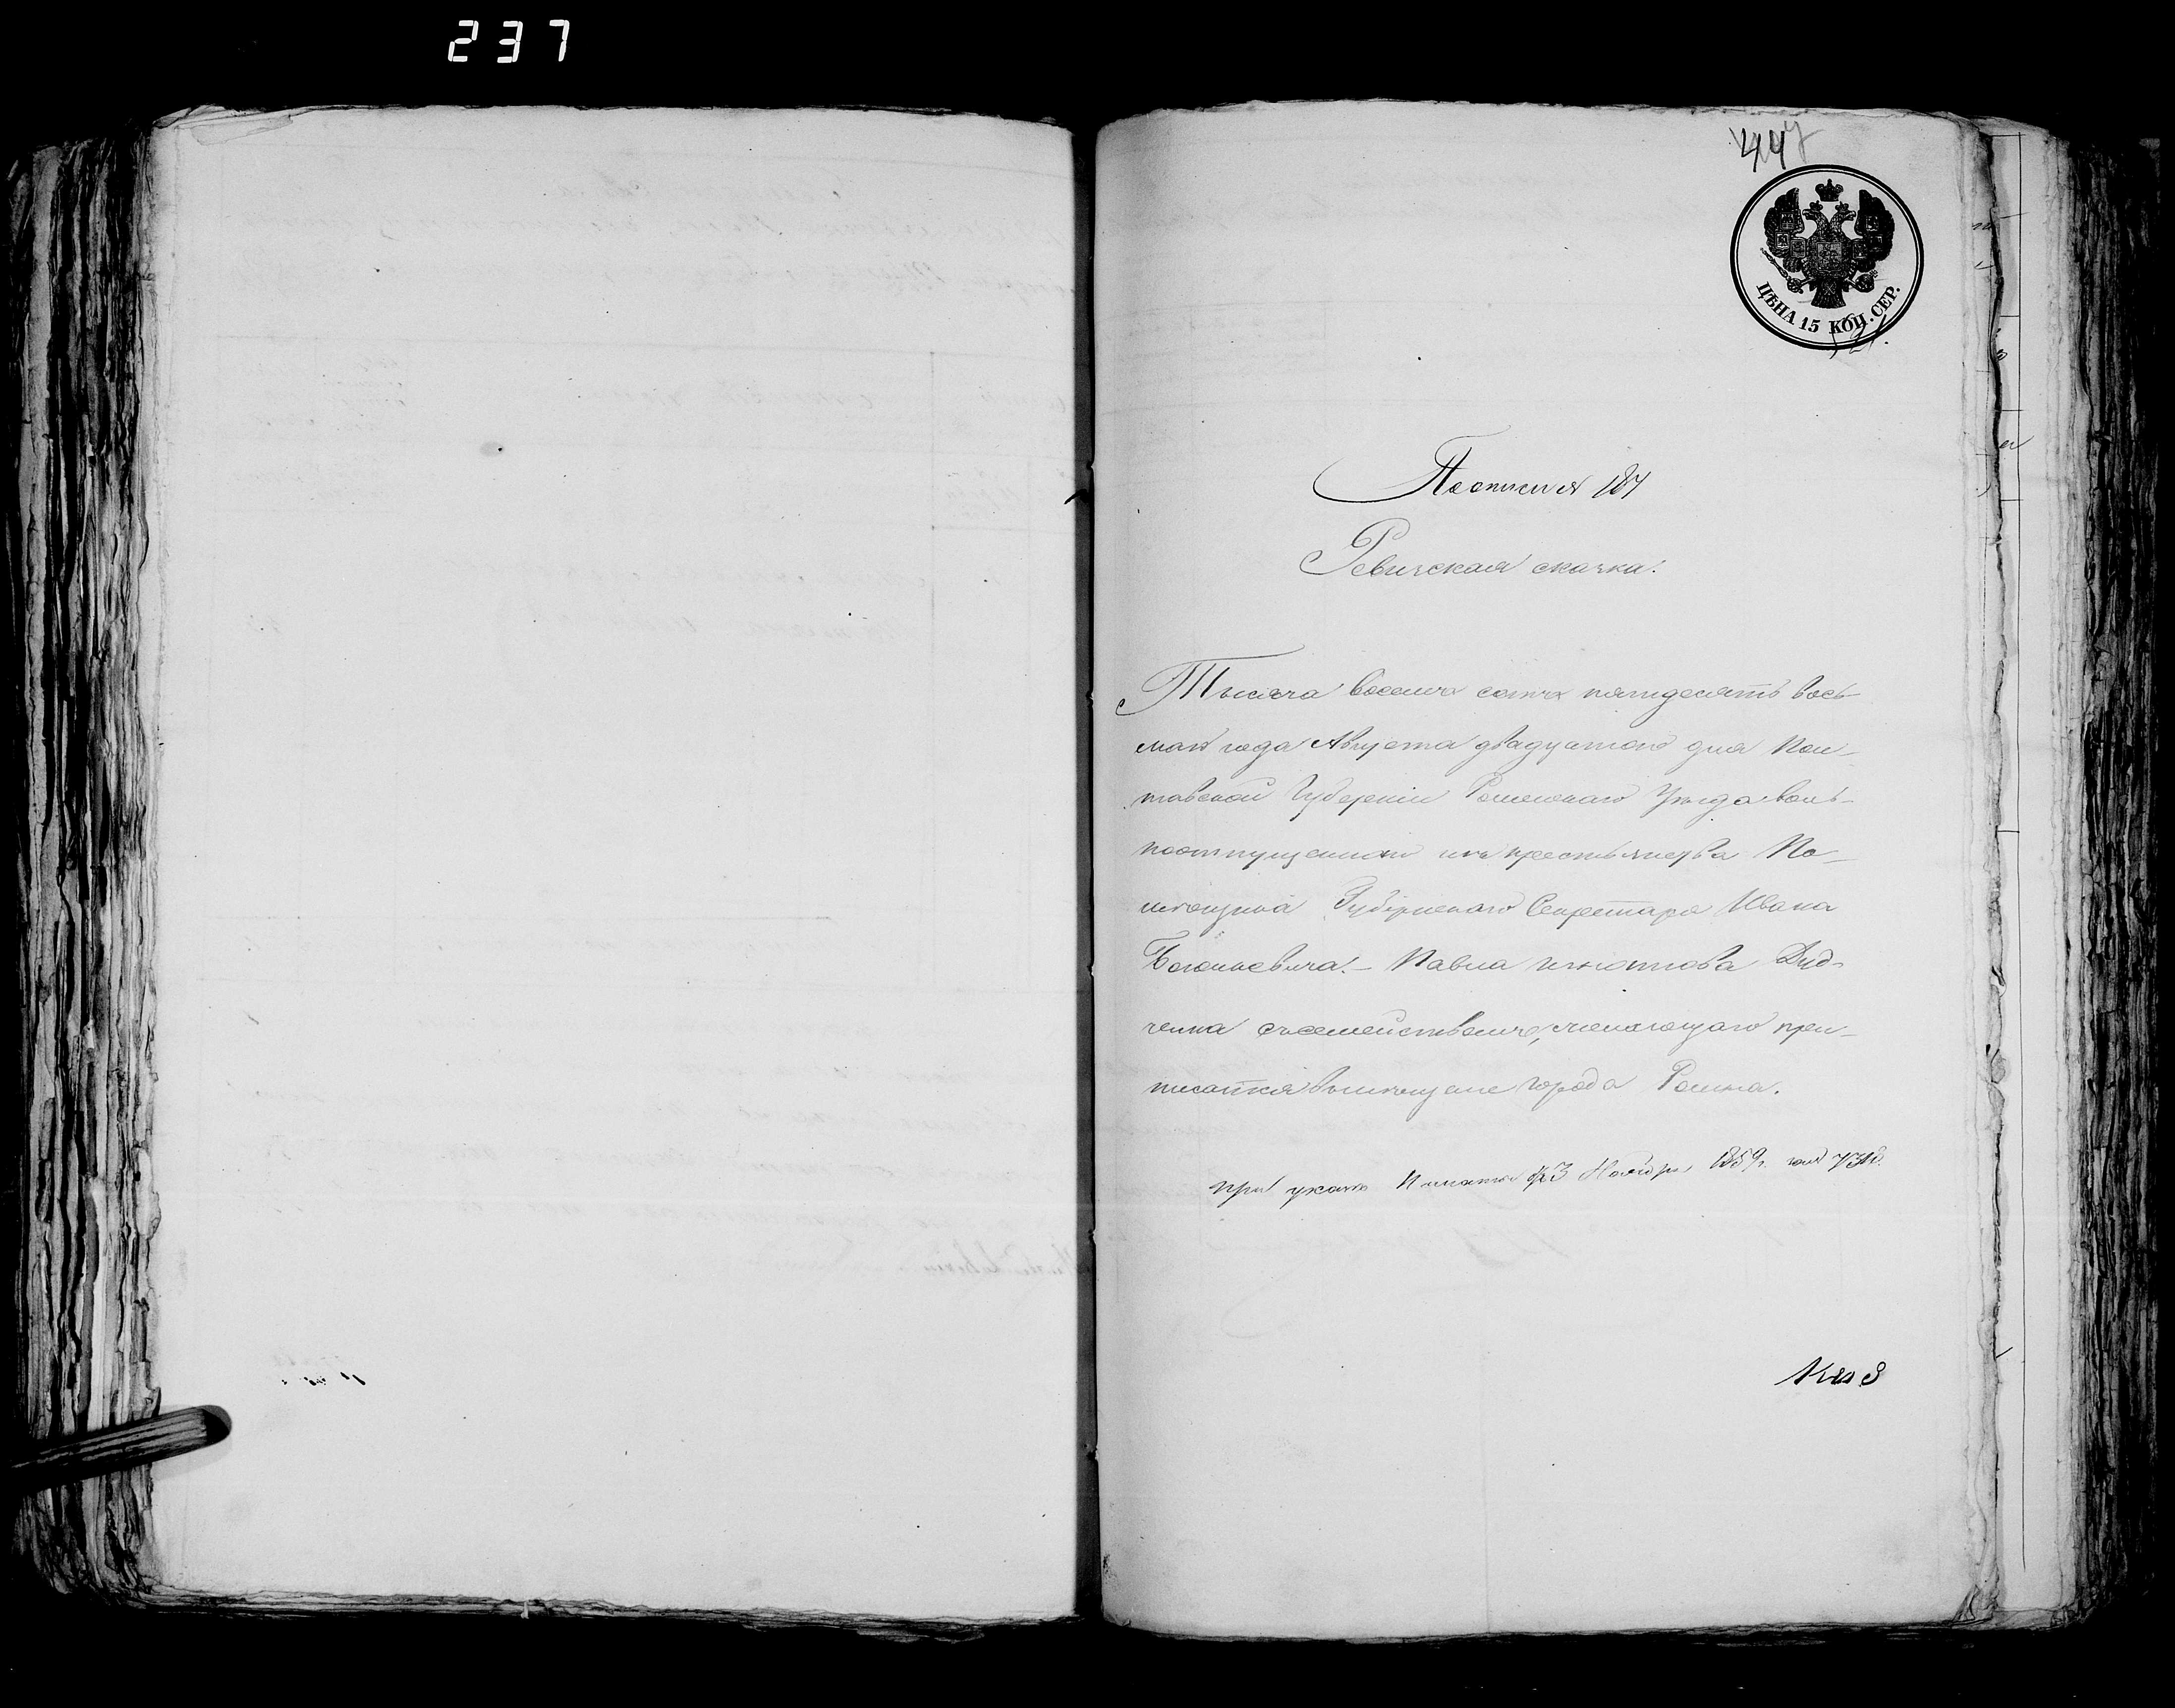 237
447
ЦѢНА 15 КОП. СЕР.
По описи № 184
Ревизская сказка.
Тысяча восемь сотъ пятидесятъ вось-
маго года Августа двадцатого дня Пол-
тавской Губерніи Роменскаго Уѣзда воль-
ноотпущенного изъ крестьянства По-
мѣщика Губернскаго Секретаря Ивана
Павла Дуд-
ченка съ семействомъ, желающаго при-
писатся въ мѣщане города Ромна.
при указѣ Палаты 23 Ноября 1859 г. за №